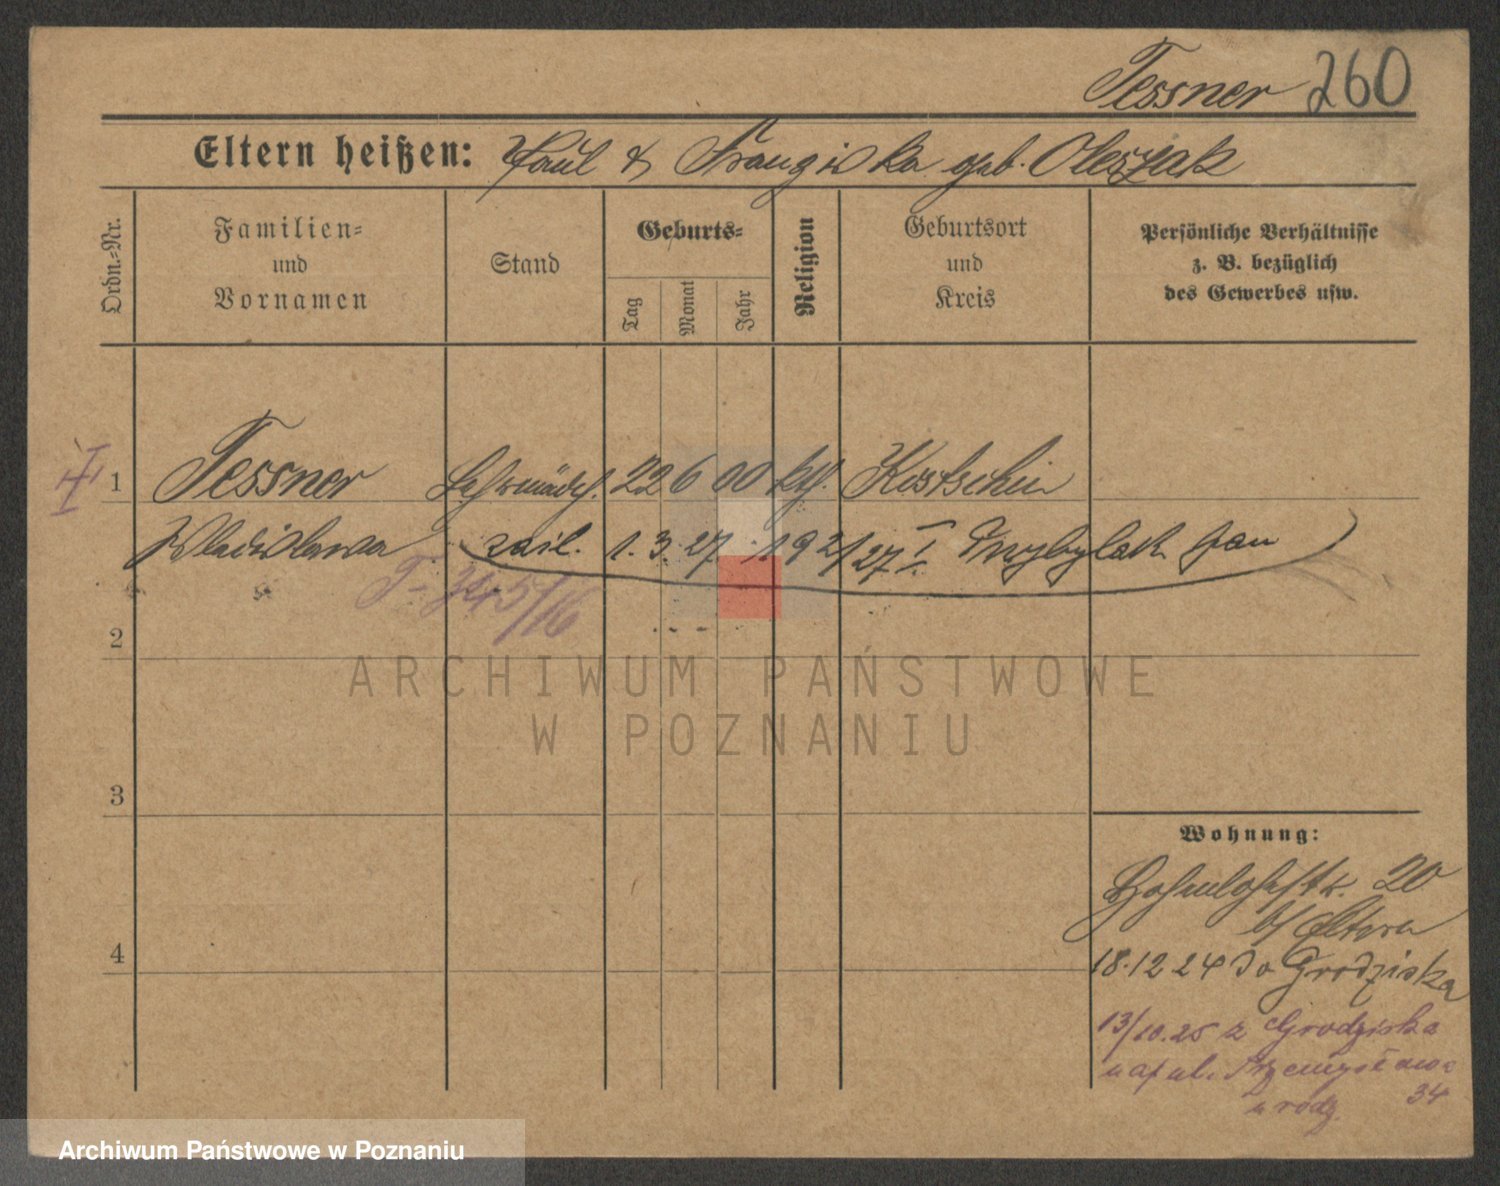 Tessner 260
Eltern heißen: Paul & Franziska geb. Oleszak
Ordn.-Nr.
Familien-
und
Vornamen
Stand
Geburts-
Tag
Monat
Jahr
Religion
Geburtsort
und
Kreis
Persönliche Verhältnisse
z. B. bezüglich
des Gewerbes usw.
I
1 Tessner Lehrmädch. 22 6 00 kth. Kostschin
Wladislawa zaśl. 1. 3. 27 192/27 I Przybylak Jan
T- 345/16
2
ARCHIWUM PAŃSTWOWE
W POZNANIU
3
Wohnung:
Hohenlohestr. 20
b/ Eltern
4
18.12 24 do Grodziska
13/10.25 z Grodziska
na ul. Przemysłowa
34
u rodz.
Archiwum Państwowe w Poznaniu